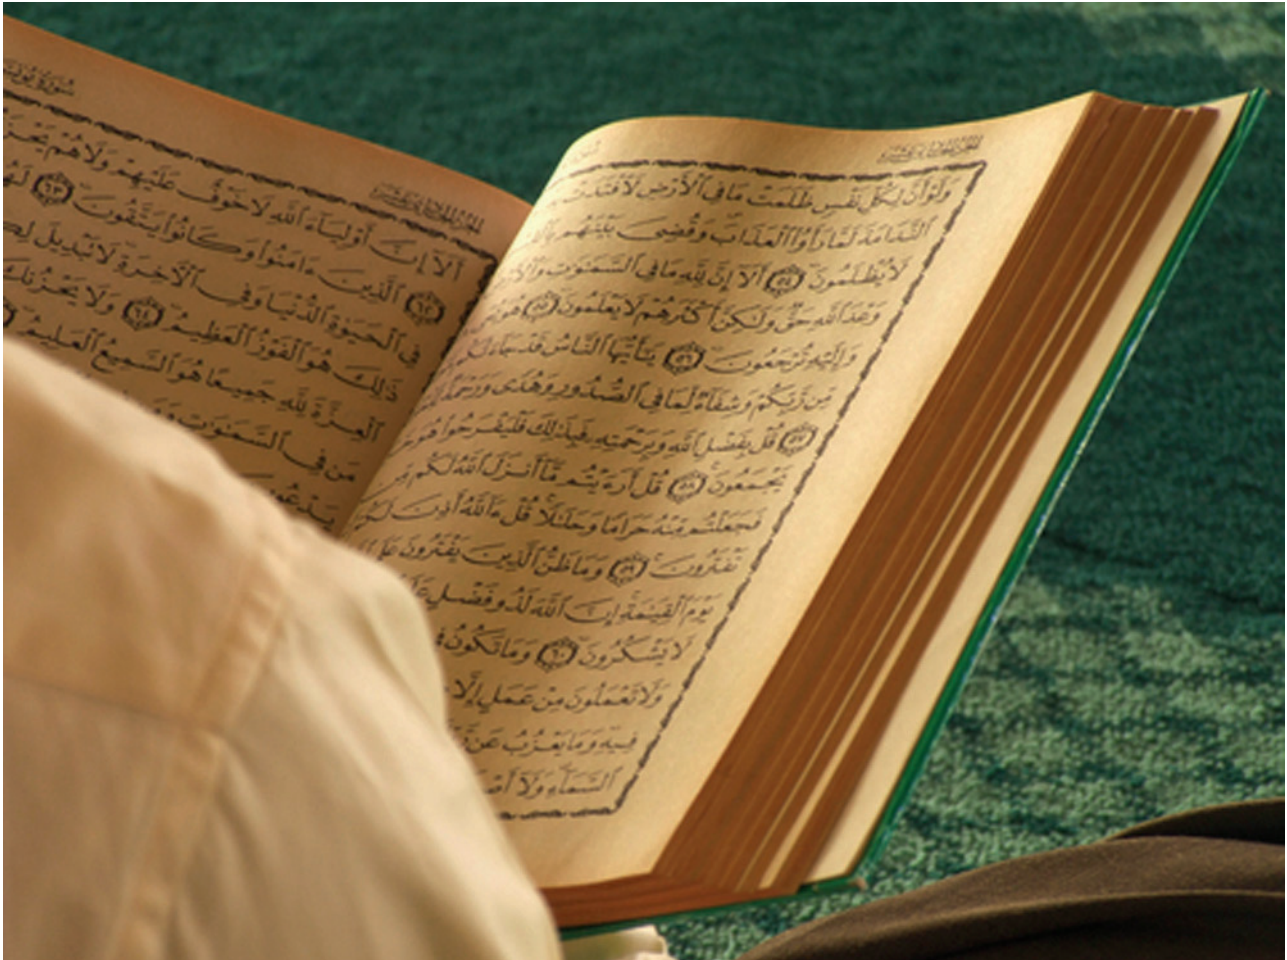 الجزء الحادي عشر
وَلَوْ أَنَّ لِكُلِّ نَفْسٍ ظَلَمَتْ مَا فِي ٱلْأَرْضِ لَٱفْتَدَتْ
ٱلنَّدَامَةَ لَمَّا رَأَوُا۟ ٱلْعَذَابَ وَقُضِىَ بَيْنَهُم
لَا يُظْلَمُونَ ٥٤ أَلَآ إِنَّ لِلَّهِ مَا فِي ٱلسَّمَٰوَٰتِ
وَعْدَ ٱللَّهِ حَقٌّ وَلَٰكِنَّ أَكْثَرَهُمْ لَا يَعْلَمُونَ ٥٥ هُوَ
وَإِلَيْهِ تُرْجَعُونَ ٥٦ يَٰٓأَيُّهَا ٱلنَّاسُ قَدْ جَآءَتْكُم
مِّن رَّبِّكُمْ وَشِفَآءٌ لِّمَا فِي ٱلصُّدُورِ وَهُدًى وَرَحْمَةٌ
٥٧ قُلْ بِفَضْلِ ٱللَّهِ وَبِرَحْمَتِهِۦ فَبِذَٰلِكَ فَلْيَفْرَحُوا۟ هُوَ
يَجْمَعُونَ ٥٨ قُلْ أَرَءَيْتُم مَّآ أَنزَلَ ٱللَّهُ لَكُم مِّن
فَجَعَلْتُم مِّنْهُ حَرَامًا وَحَلَٰلًا قُلْ ءَآللَّهُ أَذِنَ لَكُمْ
تَفْتَرُونَ ٥٩ وَمَا ظَنُّ ٱلَّذِينَ يَفْتَرُونَ عَلَى
يَوْمَ ٱلْقِيَٰمَةِ إِنَّ ٱللَّهَ لَذُو فَضْلٍ
لَا يَشْكُرُونَ ٦٠ وَمَا تَكُونُ
وَلَا تَعْمَلُونَ مِنْ عَمَلٍ إِلَّا
فِيهِ وَمَا يَعْزُبُ عَن
ٱلسَّمَآءِ وَلَآ
الجزء الحادي عشر
سورة يونس
أَلَآ إِنَّ أَوْلِيَآءَ ٱللَّهِ لَا خَوْفٌ عَلَيْهِمْ وَلَا هُمْ
٦٢ ٱلَّذِينَ ءَامَنُوا۟ وَكَانُوا۟ يَتَّقُونَ ٦٣
فِي ٱلْحَيَوٰةِ ٱلدُّنْيَا وَفِي ٱلْءَاخِرَةِ لَا تَبْدِيلَ
ذَٰلِكَ هُوَ ٱلْفَوْزُ ٱلْعَظِيمُ ٦٤ وَلَا يَحْزُنكَ
ٱلْعِزَّةَ لِلَّهِ جَمِيعًا هُوَ ٱلسَّمِيعُ ٱلْعَلِيمُ
مَن فِي ٱلسَّمَٰوَٰتِ
يَدْعُونَ